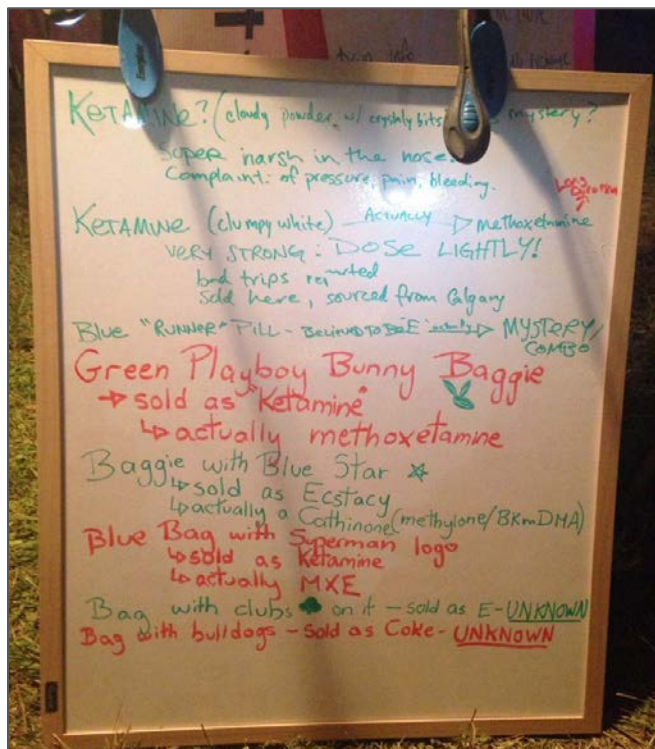 KETAMINE? (cloudy powder w/ crystaly bits mystery?
Super harsh in the nose.
Complaint: of pressure, pain, bleeding.
KETAMINE (clumpy white) ACTUALLY methoxetamine
VERY STRONG: DOSE LIGHTLY!
bad trips reported
Sold here, sourced from Calgary
Blue "RUNNER" PILL - BELIEVED TO BE "E" actually MYSTERY/
COMBO
Green Playboy Bunny Baggie
sold as "Ketamine"
actually methoxetamine
Baggie with Blue Star
sold as Ecstacy
actually a Cathinone (methylone/BKmDMA)
Blue Bag with Superman logo
sold as Ketamine
actually MXE
Bag with clubs on it - sold as E - UNKNOWN
Bag with bulldogs - Sold as Coke - UNKNOWN